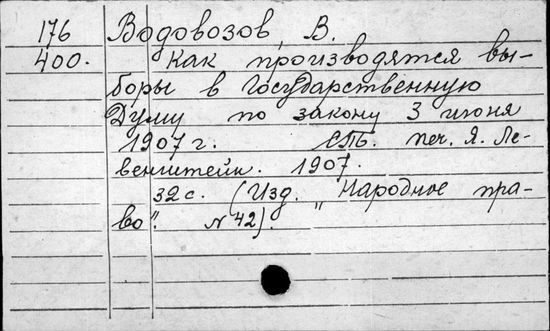 176 Водовозов, В.
400. Как производятся вы-
боры в Государственную
Думу по закону 3 июня
1907 г. СПб. печ. Я. Ле-
венштейн. 1907.
32 с. (Изд. „Народное пра-
во". N 42).